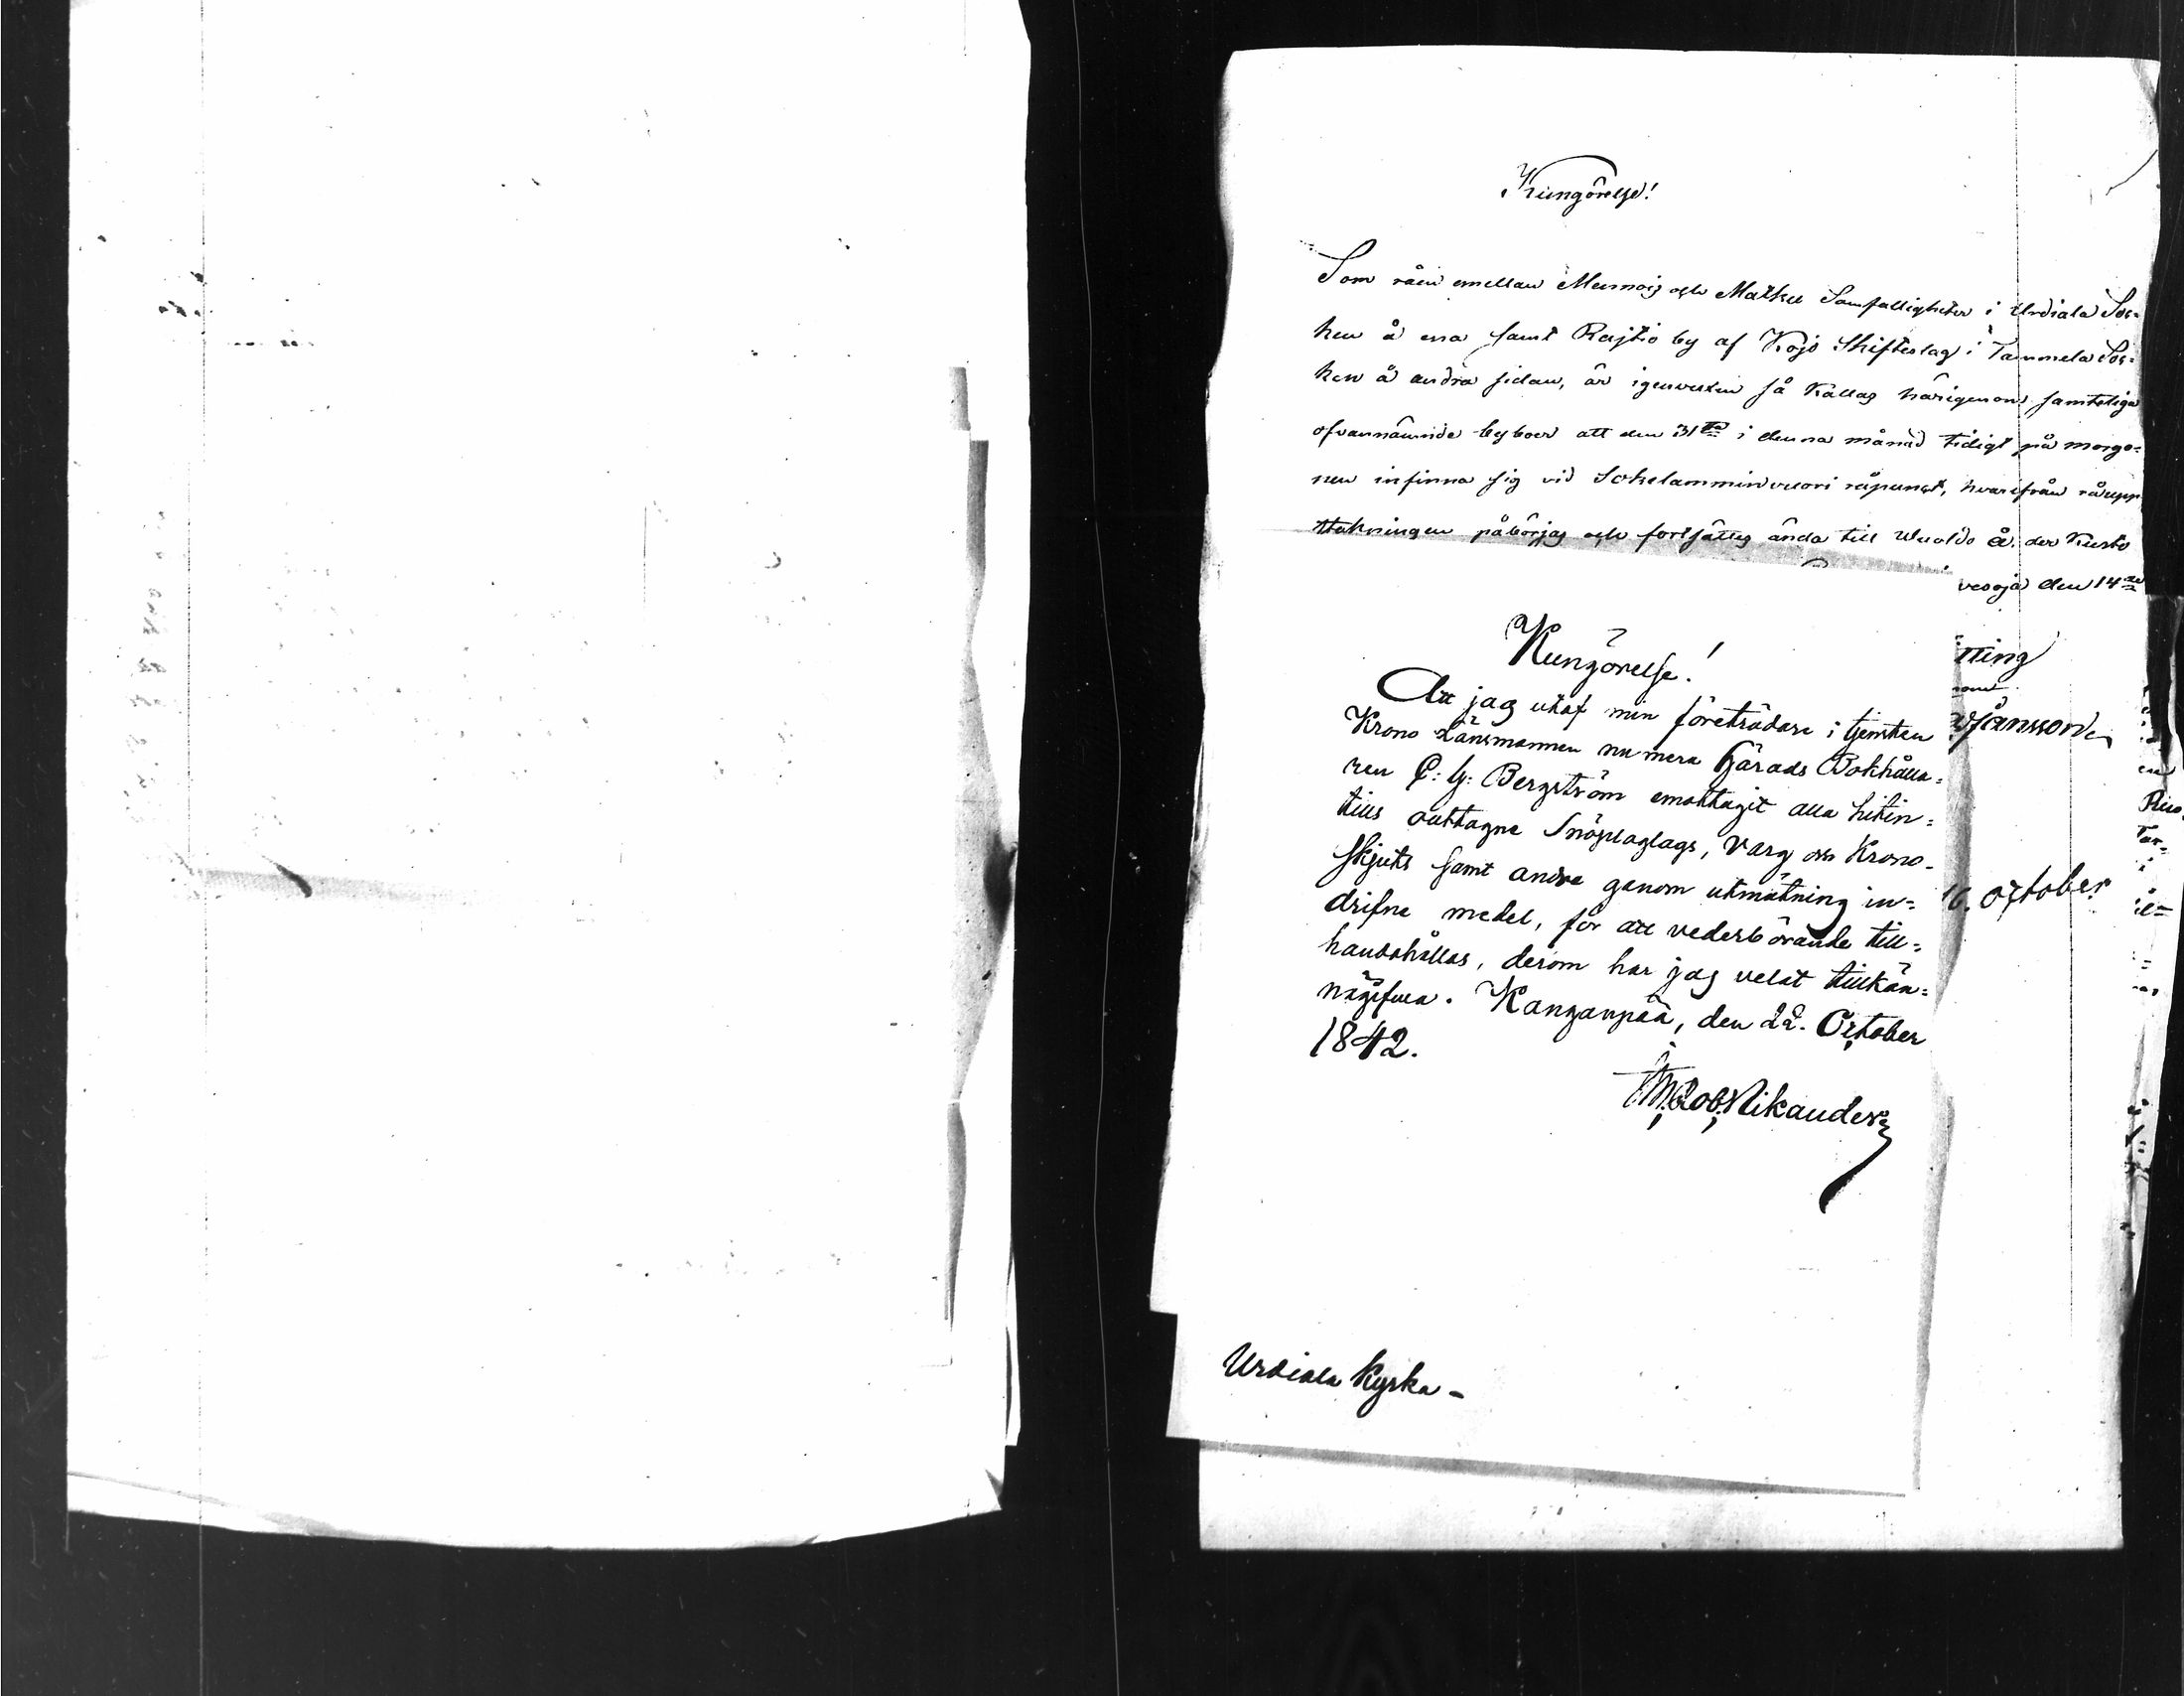 Kungörelse!
Som råen emellan Mennois och Matku Samfälligheter i Urdiala Soc=
ken å ena samt Rajtio by af Kojo Skifteslag i Tammela Soc=
ken å andra sidan, är igenvuxen så kallas härigenom samtelige
ofvannämnde byboer att den 31ta i denna månad tidigt på morgo=
nen infinna sig vid Sokelamminvuori råpunct, hvarifrån råupp
ttakningen påbörjas och fortsättes ända till å der
vesoja den 14de
Kungörelse!
tting
Att jag utaf min företrädare i tjensten
Krono Länsmannen nu mera Härads Bokhålla=
ren C: G: Bergström emottagit alla hitin=
tills outtagne Snöplogslags, Varg och Krono=
skjuts samt andre genom utmätning in=
drifne medel, för att vederbörande till=
handahållas, derom har jag velat tillkän=
nagifva. Kanganpää, den 22. October
1842.
Rob: Nikander
16. October
Urdiala Kyrka –